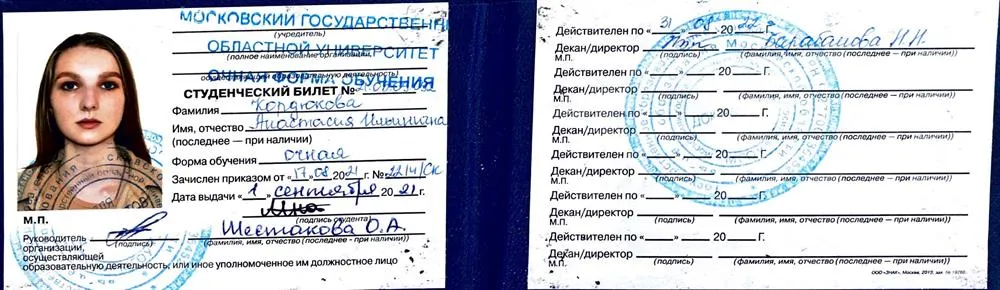 МОСКОВСКИЙ ГОСУДАРСТВЕНН
(учредитель)
ОБЛАСТНОЙ УНИВЕРСИТЕТ
(полное наименование организации,
осуществляющей образовательную деятельность)
ОЧНАЯ ФОРМА ОБУЧЕНИЯ
СТУДЕНЧЕСКИЙ БИЛЕТ №
Фамилия Кордюкова
Имя, отчество Анастасия Ильинична
(последнее — при наличии)
Форма обучения очная
Зачислен приказом от «17» 08 2021 г. №
Дата выдачи «1» сентября 2021 г.
(подпись студента)
М.П.
Руководитель Шестакова О.А.
(подпись) (фамилия, имя, отчество (последнее - при наличии))
организации,
осуществляющей
образовательную деятельность, или иное уполномоченное им должностное лицо
Действителен по «31» 08 2022 г.
Декан/директор Барабанова Н.Н.
М.П. (подпись) (фамилия, имя, отчество (последнее — при наличии)
Действителен по «» 20 г.
Декан/директор
М.П. (подпись) (фамилия, имя, отчество (последнее — при наличии)
Действителен по «» 20 г.
Декан/директор
М.П. (подпись) (фамилия, имя, отчество (последнее — при наличии)
Действителен по «» 20 г.
Декан/директор
М.П. (подпись) (фамилия, имя, отчество (последнее — при наличии)
Действителен по «» 20 г.
Декан/директор
М.П. (подпись) (фамилия, имя, отчество (последнее — при наличии)
Действителен по «» 20 г.
Декан/директор
М.П. (подпись) (фамилия, имя, отчество (последнее — при наличии)
ООО «ЗНАК», Москва, 2015, зак. №